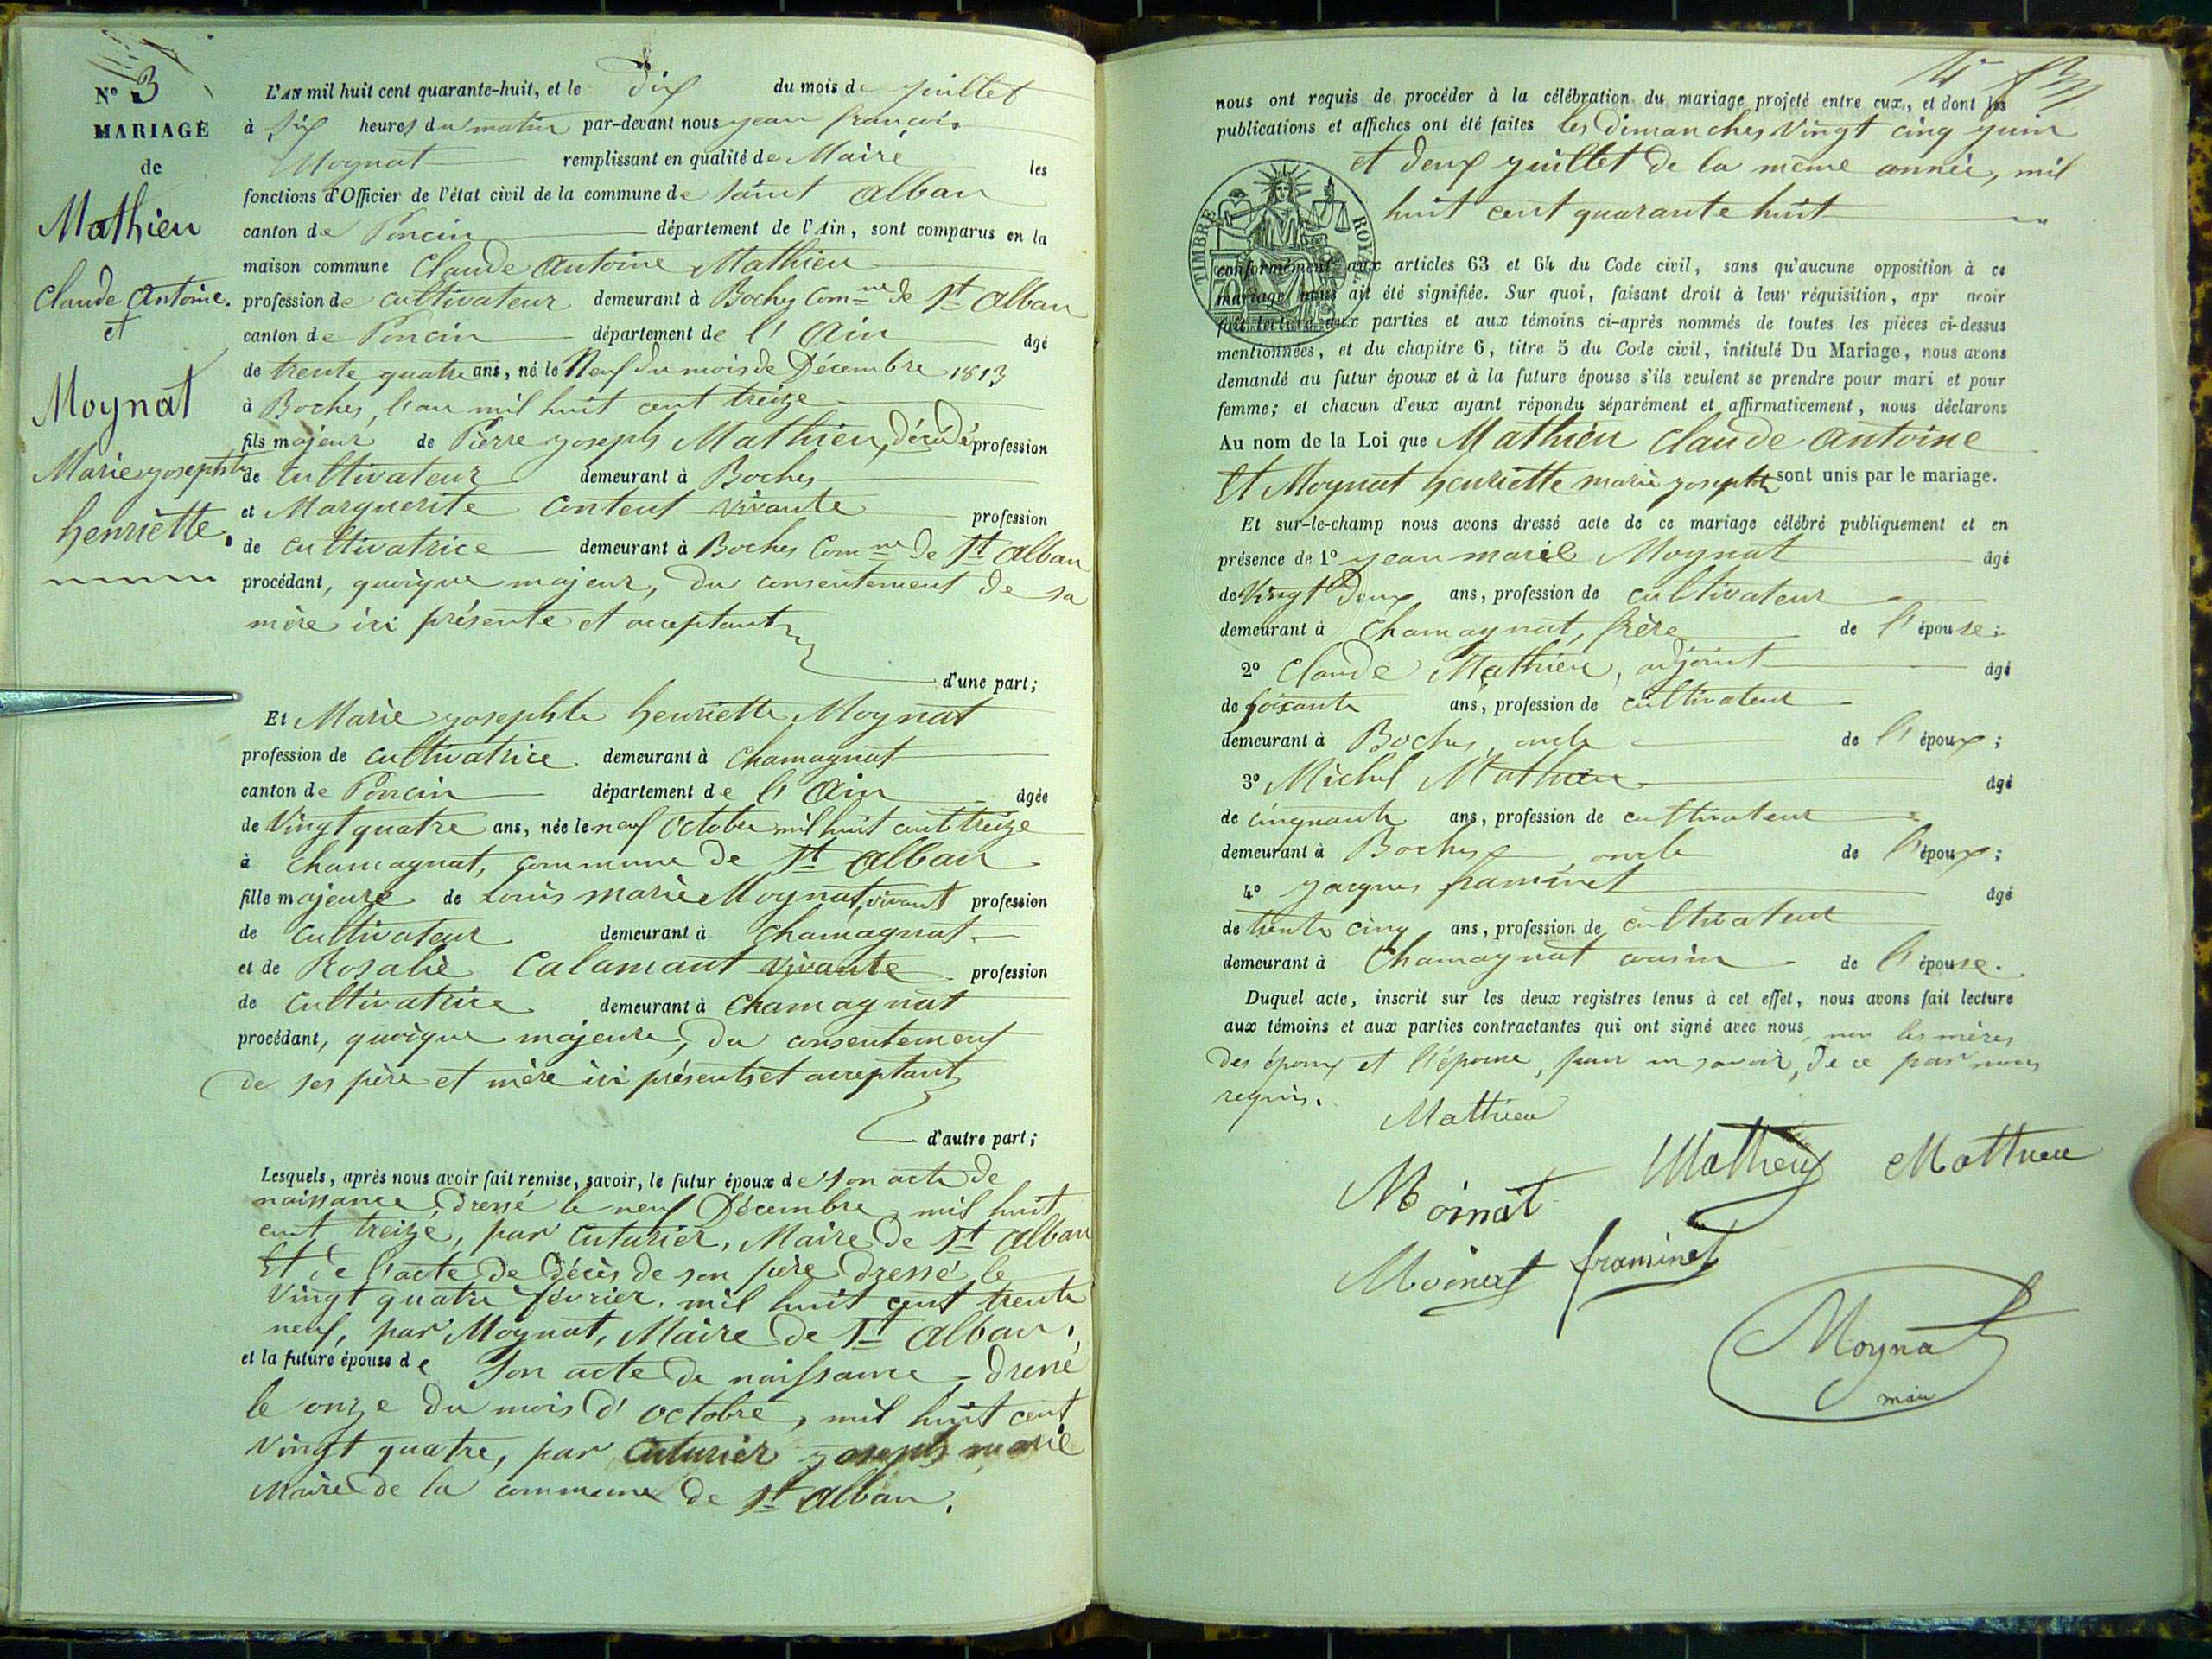 N° 3
MARIAGE
de
Mathieu
Claude Antoine.
et
Moynat
Marie yosephte
henriette.
L'AN mil huit cent quarante-huit, et le dix du mois de juillet
à six heures du matin par-devant nous yean françois
Moynat remplissant en qualité de Maire les
fonctions d'Officier de l'état civil de la commune de saint Alban
canton de Poncin département de l'Ain, sont comparus en la
maison commune Claude Antoine Mathieu
profession de cultivateur demeurant à Boches Comne de St Alban
canton de Poncin département de l'Ain âgé
de trente quatre ans, né le Neuf du mois de Décembre 1813
à Boches, l'an mil huit cent treize
fils majeur de Pierre yoseph Mathieu, décédé profession
de cultivateur demeurant à Boches
et Marguerite Content vivante profession
de cultivatrice demeurant à Boches Comne de St Alban
procédant, quoique majeur, du consentement de sa
mère ici présente et acceptant
d'une part;
Et Marie yosephte henriette Moynat
profession de cultivatrice demeurant à Chamagnat
canton de Poncin département de l'Ain âgée
de Vingt quatre ans, née le neuf Octobre mil huit cent treize
à Chamagnat, commune de St Alban
fille majeure de Louis marie Moynat, vivant profession
de cultivateur demeurant à Chamagnat
et de Rosalie Calamant vivante profession
de cultivatrice demeurant à Chamagnat
procédant, quoique majeure, du consentement
de ses père et mère ici présents et acceptant
d'autre part;
Lesquels, après nous avoir fait remise, savoir, le futur époux de son acte de
naissance dressé le neuf Décembre mil huit
cent treize, par Cuturier, Maire de St Alban
Et de l'acte de décès de son père dressé le
Vingt quatre février mil huit cent trente
neuf, par Moynat, Maire de St Alban,
et la future épouse de Son acte de naissance, dressé
le onze du mois d'octobre, mil huit cent
vingt quatre, par Cuturier yoseph marie
Maire de la commune de St Alban.
nous ont requis de procéder à la célébration du mariage projeté entre eux, et dont les
publications et affiches ont été faites les dimanches vingt cinq yuin
et deux yuillet de la même année, mil
huit cent quarante huit
TIMBRE ROYAL
conformément aux articles 63 et 64 du Code civil, sans qu'aucune opposition à ce
mariage nous ait été signifiée. Sur quoi, faisant droit à leur réquisition, apr avoir
fait lecture aux parties et aux témoins ci-après nommés de toutes les pièces ci-dessus
mentionnées, et du chapitre 6, titre 5 du Code civil, intitulé Du Mariage, nous avons
demandé au futur époux et à la future épouse s'ils veulent se prendre pour mari et pour
femme; et chacun d'eux ayant répondu séparément et affirmativement, nous déclarons
Au nom de la Loi que Mathieu Claude Antoine
Et Moynat henriette marie yosephte sont unis par le mariage.
Et sur-le-champ nous avons dressé acte de ce mariage célébré publiquement et en
présence de 1° yean marie Moynat âgé
de Vingt deux ans, profession de cultivateur
demeurant à Chamagnat, frère de l'épouse;
2° Claude Mathieu, adjoint âgé
de soixante ans, profession de cultivateur
demeurant à Boches, oncle de l'époux;
3° Michel Mathieu âgé
de cinquante ans, profession de cultivateur
demeurant à Boches, oncle de l'époux;
4° yacques framinet âgé
de trente cinq ans, profession de cultivateur
demeurant à Chamagnat cousin de l'épouse.
Duquel acte, inscrit sur les deux registres tenus à cet effet, nous avons fait lecture
aux témoins et aux parties contractantes qui ont signé avec nous, non les mères
des époux et l'épouse, pour ne savoir, de ce par nous
requis.
Mathieu
Mathieu Mathieu
Moinat
Moinat framinet
Moynat
maire